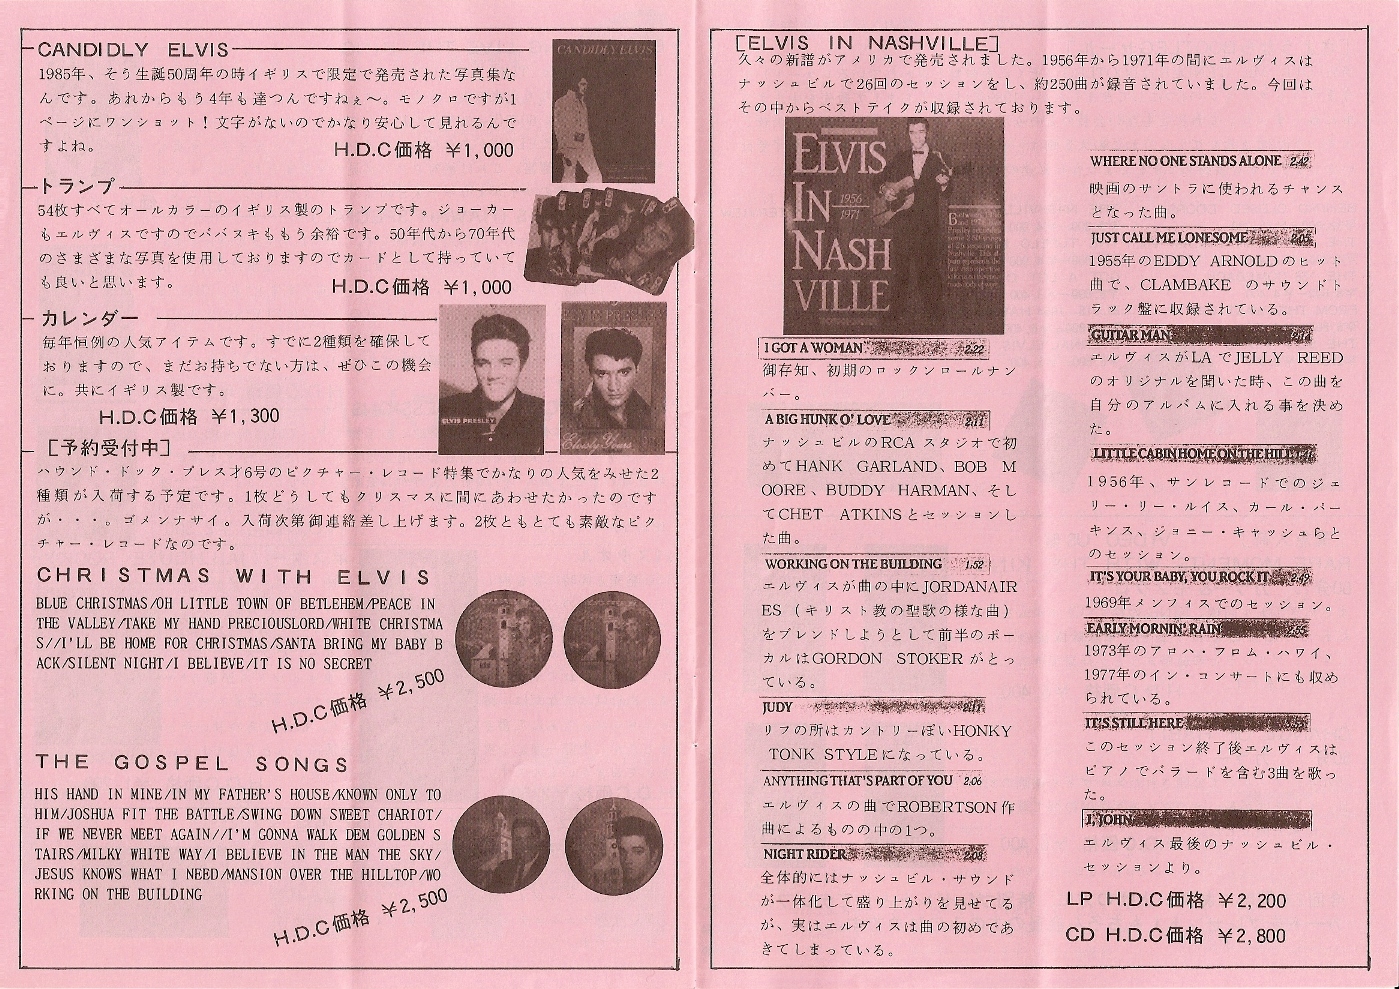 CANDIDLY ELVIS
1985年、そう生誕50周年の時イギリスで限定で発売された写真集な
んです。あれからもう4年も達つんですねぇ〜。モノクロですが1
ページにワンショット！文字がないのでかなり安心して見れるんで
すよね。
H.D.C価格 ￥1,000
CANDIDLY ELVIS
トランプ
54枚すべてオールカラーのイギリス製のトランプです。ジョーカー
もエルヴィスですのでババヌキももう余裕です。50年代から70年代
のさまざまな写真を使用しておりますのでカードとして持っていて
も良いと思います。
H.D.C価格 ￥1,000
カレンダー
毎年恒例の人気アイテムです。すでに2種類を確保して
おりますので、まだお持ちでない方は、ぜひこの機会
に。共にイギリス製です。
H.D.C価格 ￥1,300
ELVIS PRESLEY
ELVIS PRESLEY
［予約受付中］
ハウンド・ドック・プレスオ6号のピクチャー・レコード特集でかなりの人気をみせた2
種類が入荷する予定です。1枚どうしてもクリスマスに間にあわせたかったのです
が・・・。ゴメンナサイ。入荷次第御連絡差し上げます。2枚ともとても素敵なピク
チャー・レコードなのです。
CHRISTMAS WITH ELVIS
BLUE CHRISTMAS/OH LITTLE TOWN OF BETLEHEM/PEACE IN
THE VALLEY/TAKE MY HAND PRECIOUSLORD/WHITE CHRISTMA
S//I'LL BE HOME FOR CHRISTMAS/SANTA BRING MY BABY B
ACK/SILENT NIGHT/I BELIEVE/IT IS NO SECRET
H.D.C価格 ￥2,500
THE GOSPEL SONGS
HIS HAND IN MINE/IN MY FATHER'S HOUSE/KNOWN ONLY TO
HIM/JOSHUA FIT THE BATTLE/SWING DOWN SWEET CHARIOT/
IF WE NEVER MEET AGAIN//I'M GONNA WALK DEM GOLDEN S
TAIRS/MILKY WHITE WAY/I BELIEVE IN THE MAN THE SKY/
JESUS KNOWS WHAT I NEED/MANSION OVER THE HILLTOP/WO
RKING ON THE BUILDING
H.D.C価格 ￥2,500
［ELVIS IN NASHVILLE］
久々の新譜がアメリカで発売されました。1956年から1971年の間にエルヴィスは
ナッシュビルで26回のセッションをし、約250曲が録音されていました。今回は
その中からベストテイクが収録されております。
ELVIS
IN
1956
1971
NASH
VILLE
I GOT A WOMAN 2:22
御存知、初期のロックンロールナン
バー。
A BIG HUNK O' LOVE 2:11
ナッシュビルのRCA スタジオで初
めてHANK GARLAND、BOB M
OORE、BUDDY HARMAN、そし
てCHET ATKINSとセッションし
た曲。
WORKING ON THE BUILDING 1:52
エルヴィスが曲の中にJORDANAIR
ES （キリスト教の聖歌の様な曲）
をブレンドしようとして前半のボー
カルはGORDON STOKERがとっ
ている。
JUDY 2:11
リフの所はカントリーぽいHONKY
TONK STYLEになっている。
ANYTHING THAT'S PART OF YOU 2:06
エルヴィスの曲でROBERTSON作
曲によるものの中の1つ。
NIGHT RIDER 2:08
全体的にはナッシュビル・サウンド
が一体化して盛り上がりを見せてる
が、実はエルヴィスは曲の初めであ
きてしまっている。
WHERE NO ONE STANDS ALONE 2:42
映画のサントラに使われるチャンス
となった曲。
JUST CALL ME LONESOME 2:05
1955年のEDDY ARNOLDのヒット
曲で、CLAMBAKE のサウンドト
ラック盤に収録されている。
GUITAR MAN 2:14
エルヴィスがLAでJELLY REED
のオリジナルを聞いた時、この曲を
自分のアルバムに入れる事を決め
た。
LITTLE CABIN HOME ON THE HILL
1956年、サンレコードでのジェ
リー・リー・ルイス、カール・パー
キンス、ジョニー・キャッシュらと
のセッション。
IT'S YOUR BABY, YOU ROCK IT 2:49
1969年メンフィスでのセッション。
EARLY MORNIN' RAIN 2:55
1973年のアロハ・フロム・ハワイ、
1977年のイン・コンサートにも収め
られている。
IT'S STILL HERE
このセッション終了後エルヴィスは
ピアノでバラードを含む3曲を歌っ
た。
I, JOHN
エルヴィス最後のナッシュビル・
セッションより。
LP H.D.C価格 ￥2,200
CD H.D.C価格 ￥2,800